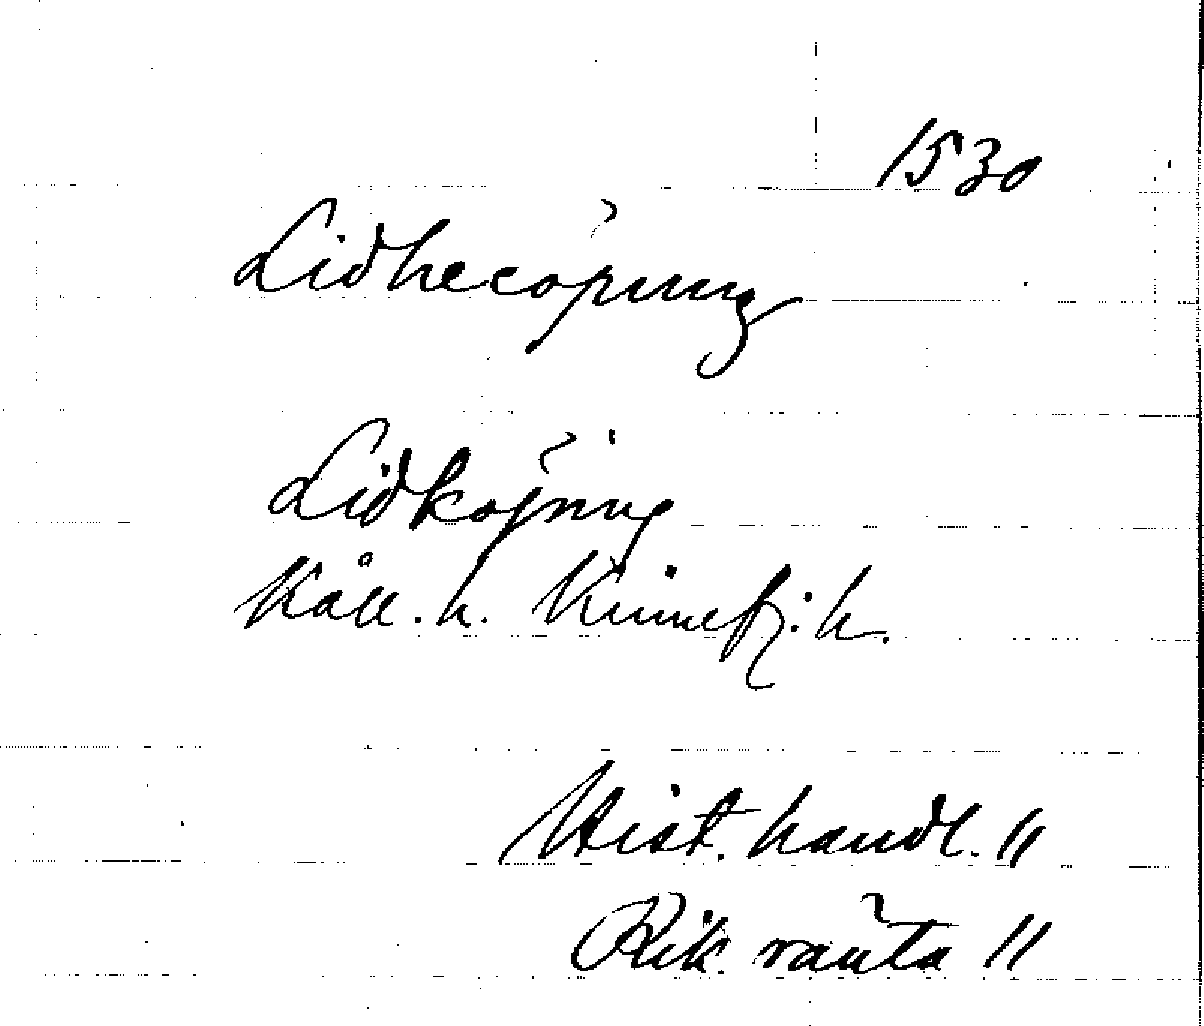 1530
Lidhecöpung
Lidköping
Kåll. h. Kinnefj. h.
Hist. handl. 11
Rik. ränta 11